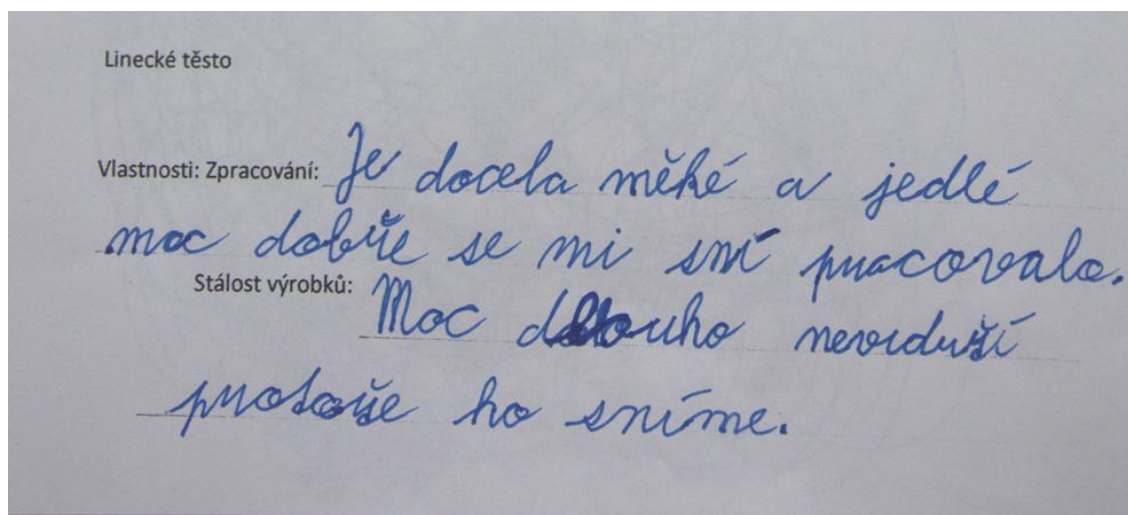 Linecké těsto
Vlastnosti: Zpracování: Je docela měké a jedlé
moc dobře se mi sní pracovalo.
Stálost výrobků: Moc dlouho nevrduší
protože ho sníme.